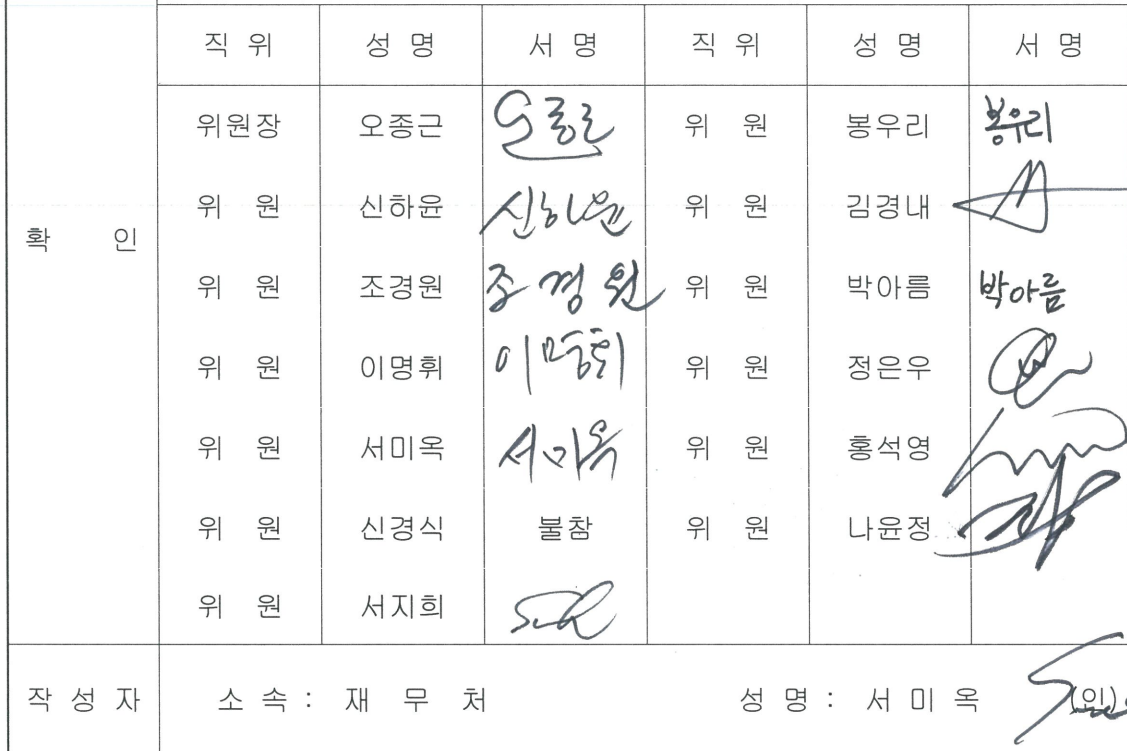 직 위 성 명 서 명 직 위 성 명 서 명
위원장 오종근 오종근 위 원 봉우리 봉우리
위 원 신하윤 신하윤 위 원 김경내
확 인
위 원 조경원 조경원 위 원 박아름 박아름
위 원 이명휘 이명휘 위 원 정은우
위 원 서미옥 서미옥 위 원 홍석영
위 원 신경식 불참 위 원 나윤정
위 원 서지희
작 성 자 소 속 : 재 무 처 성 명 : 서 미 옥 (인)